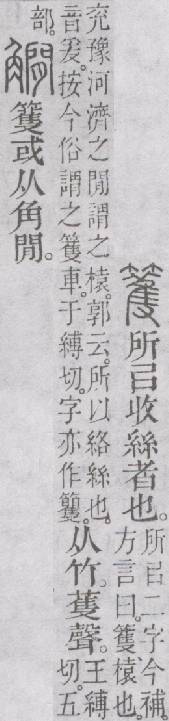 籆所㠯收絲者也。
所㠯二字今補。
方言曰。籆榬也。
兗豫河濟之閒謂之榬。郭云。所以絡絲也。
音爰。按今俗謂之籆車。于縛切。字亦作籰。
从竹。蒦聲。
王縛
切。五
部。
籆或从角閒。